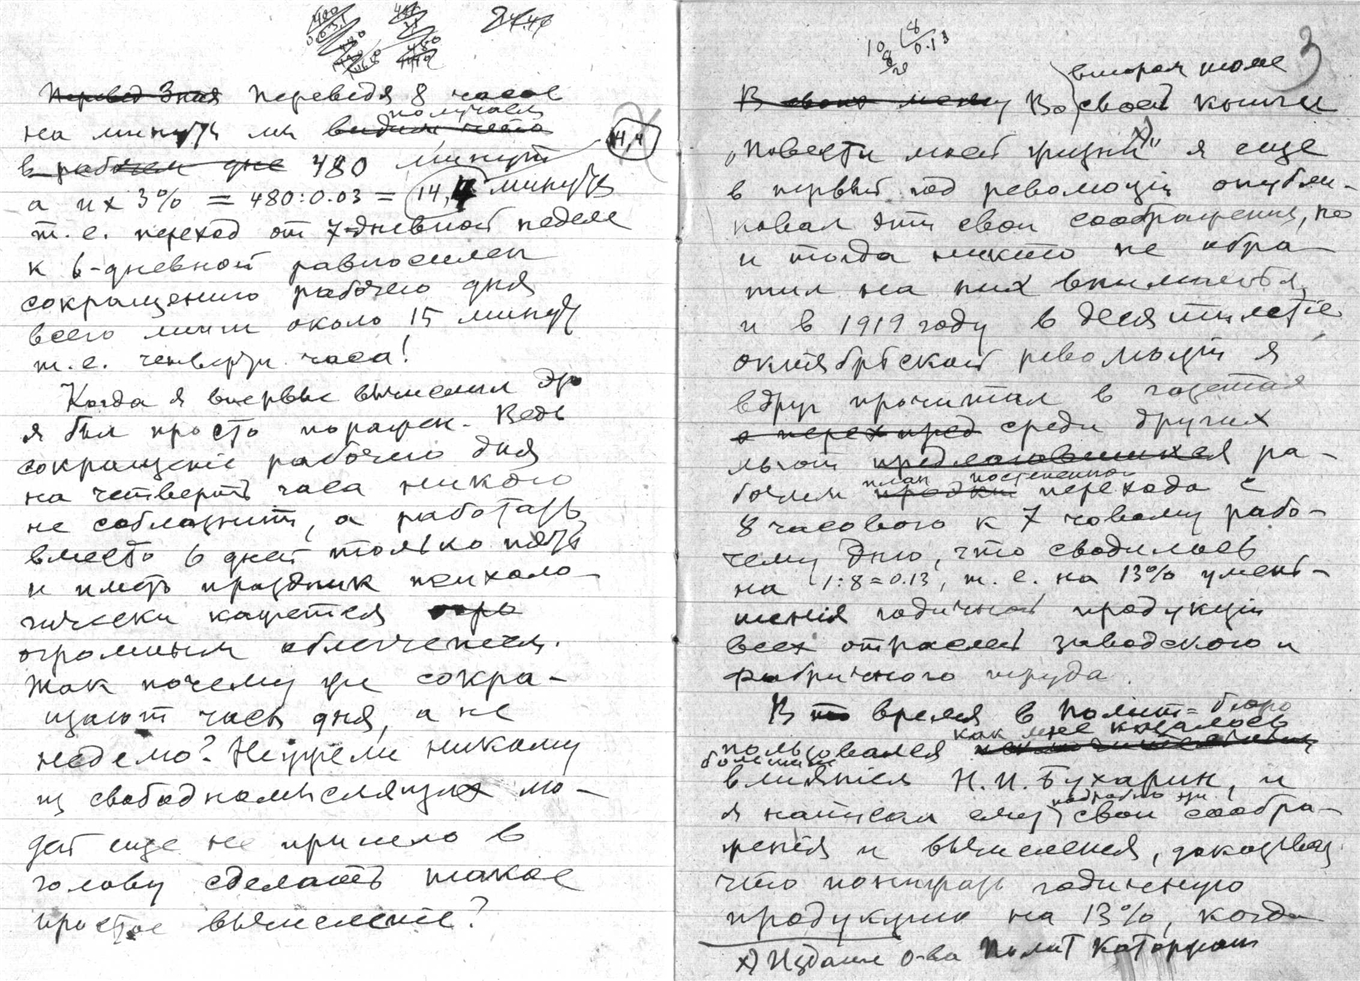 Переведя 8 часов
на минуты мы получаем
в рабочем дне 480 минут
а их 3% = 480:0.03 = 14,4 минуты
14,4
т.е. переход от 7-дневной недели
к 6-дневной равносилен
сокращению рабочего дня
всего лишь около 15 минут
т.е. четверти часа!
Когда я впервые вычислил это
я был просто поражен. Ведь
сокращение рабочего дня
на четверть часа никого
не соблазнит, а работать
вместо 6 дней только пять
и иметь праздник психоло-
гически кажется
огромным облегчением.
Так почему же сокра-
щают часы дня, а не
неделю? Неужели никому
из свободномыслящих лю-
дей еще не пришло в
голову сделать такое
простое вычисление?
3
0.13
втором томе
В Во своей книги
„Повести моей жизни" x) я еще
в первый год революціи опубли-
ковал эти свои соображения, но
и тогда никто не обра-
тил на них внимания,
и в 1919 году в десятилетіе
октябрьской революціи я
вдруг прочитал в газетах
среди других
льгот ра-
план постепенного
бочим перехода с
8 часового к 7 човому рабо-
чему дню, что сводилось
на 1:8=0.13, т.е. на 13% умень-
шенія годичной продукціи
всех отраслей заводского и
фабричного труда.
В то время в Полит-бюро
как мне казалось
пользовался
большим
влиянием Н.И.Бухарин, и
подробно
я написал ему свои сообра-
жения и вычисления, доказывая
что понижать годичную
продукцию на 13%, когда
x) Издание о-ва Полит Каторжан